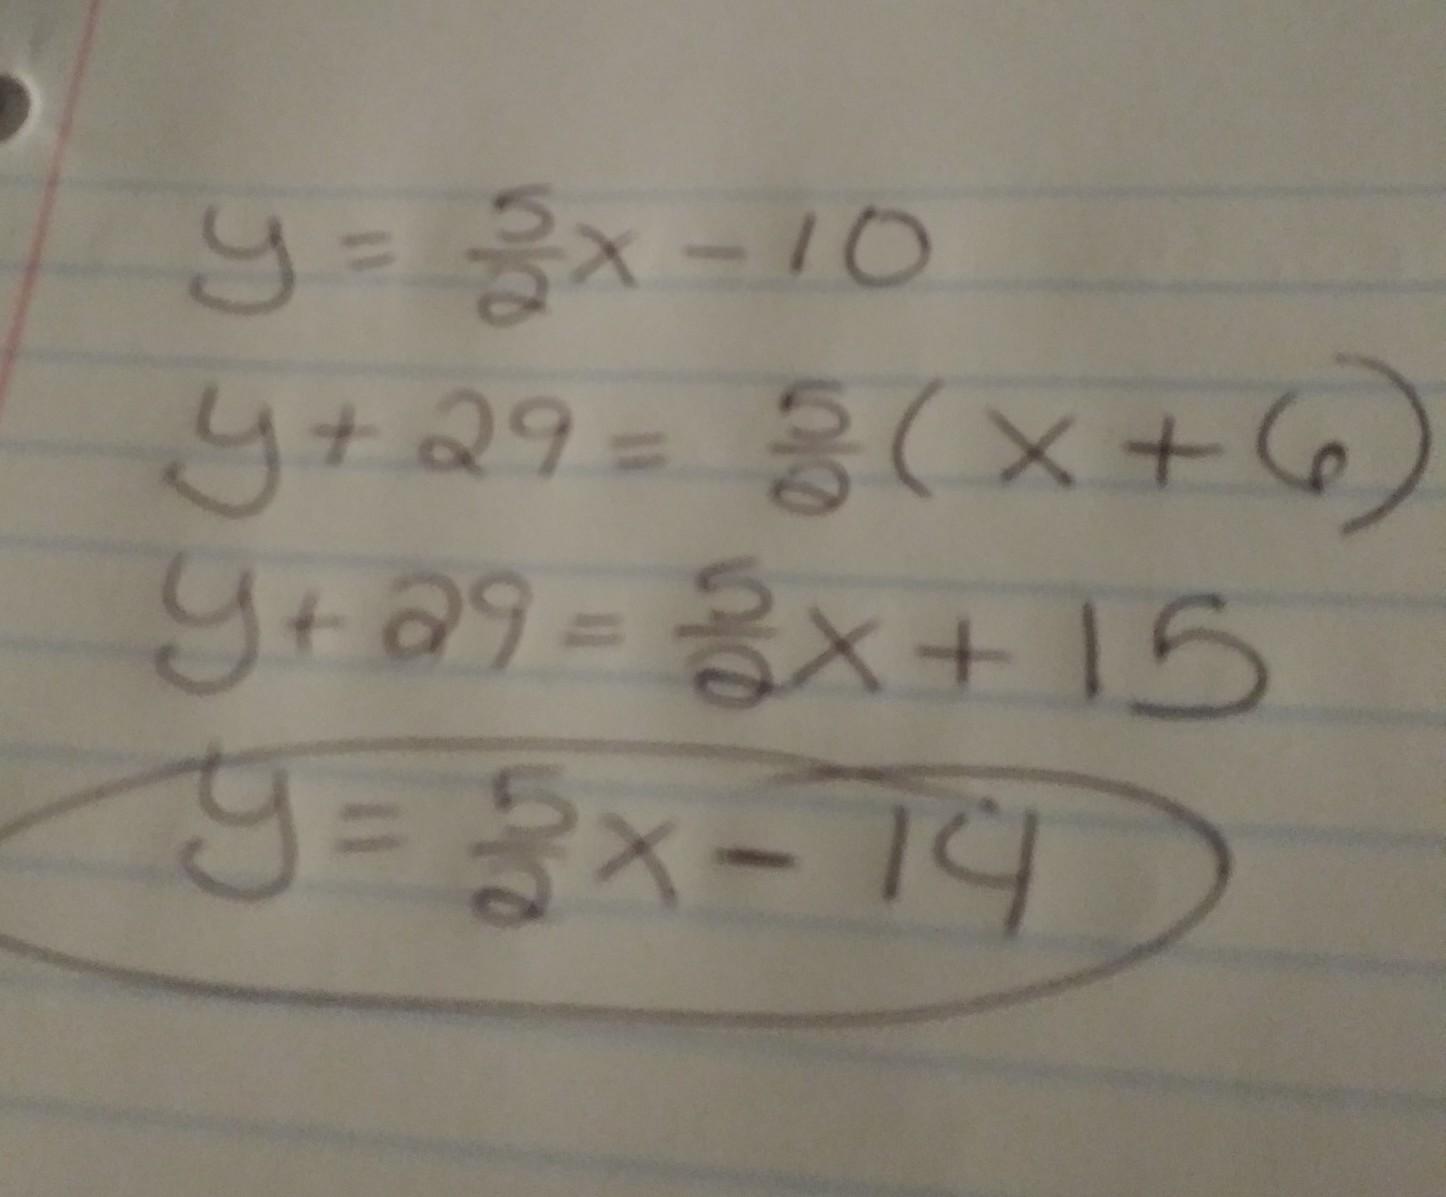 y = 5/2 x - 10
y + 29 = 5/2 (x + 6)
y + 29 = 5/2 x + 15
y = 5/2 x - 14